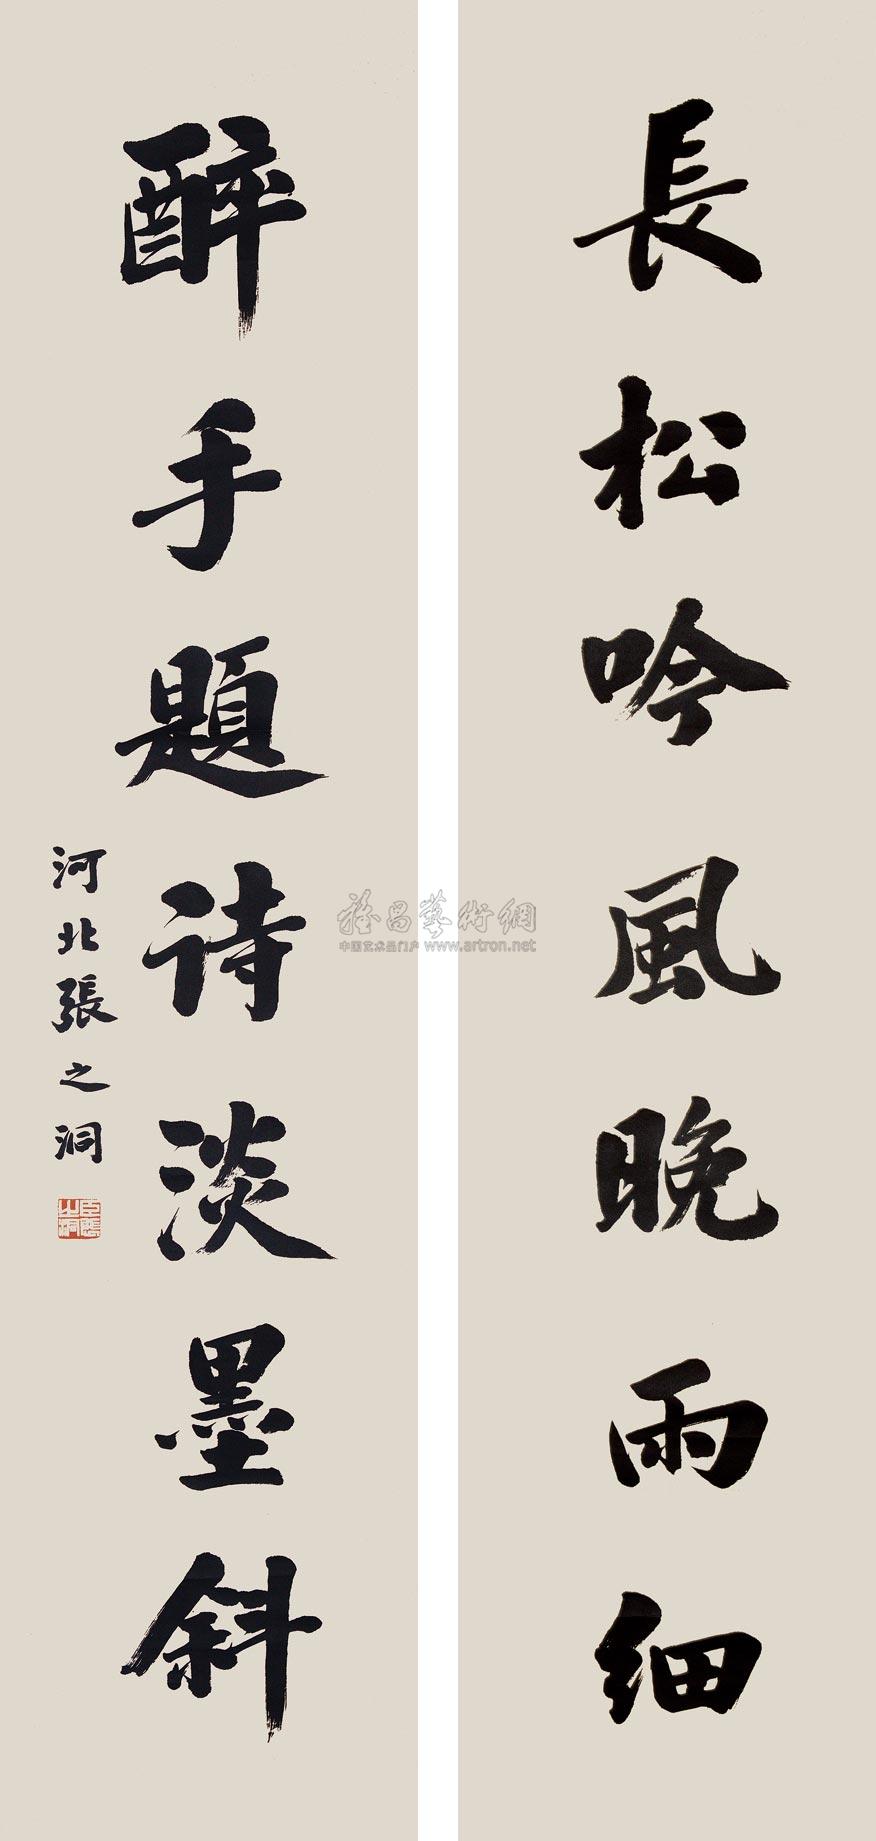 長松吟風晚雨細
醉手題詩淡墨斜
河北張之洞
雅昌藝術網
中国艺术品门户 www.artron.net